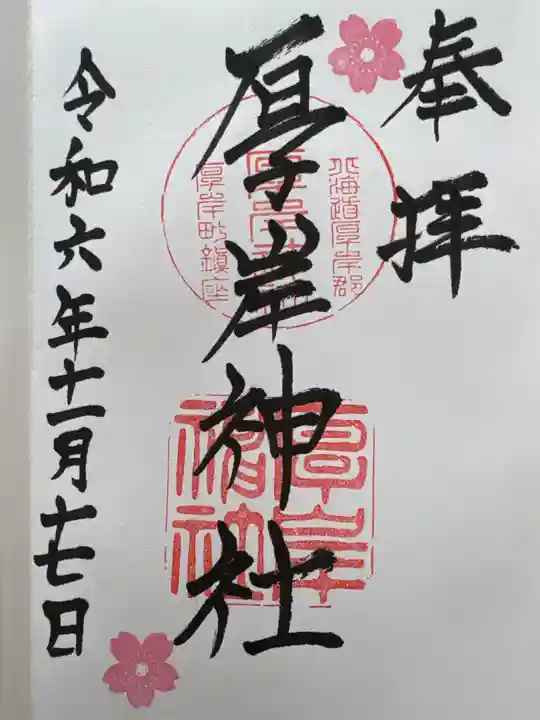 奉拝
北海道厚岸郡
厚岸神社
厚岸町鎮座
厚岸神社
厚岸神社
令和六年十一月十七日